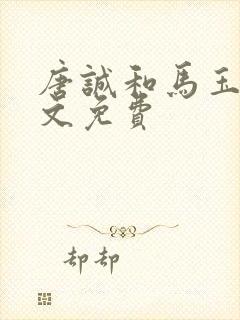 唐誠和馬玉
文免費
却却